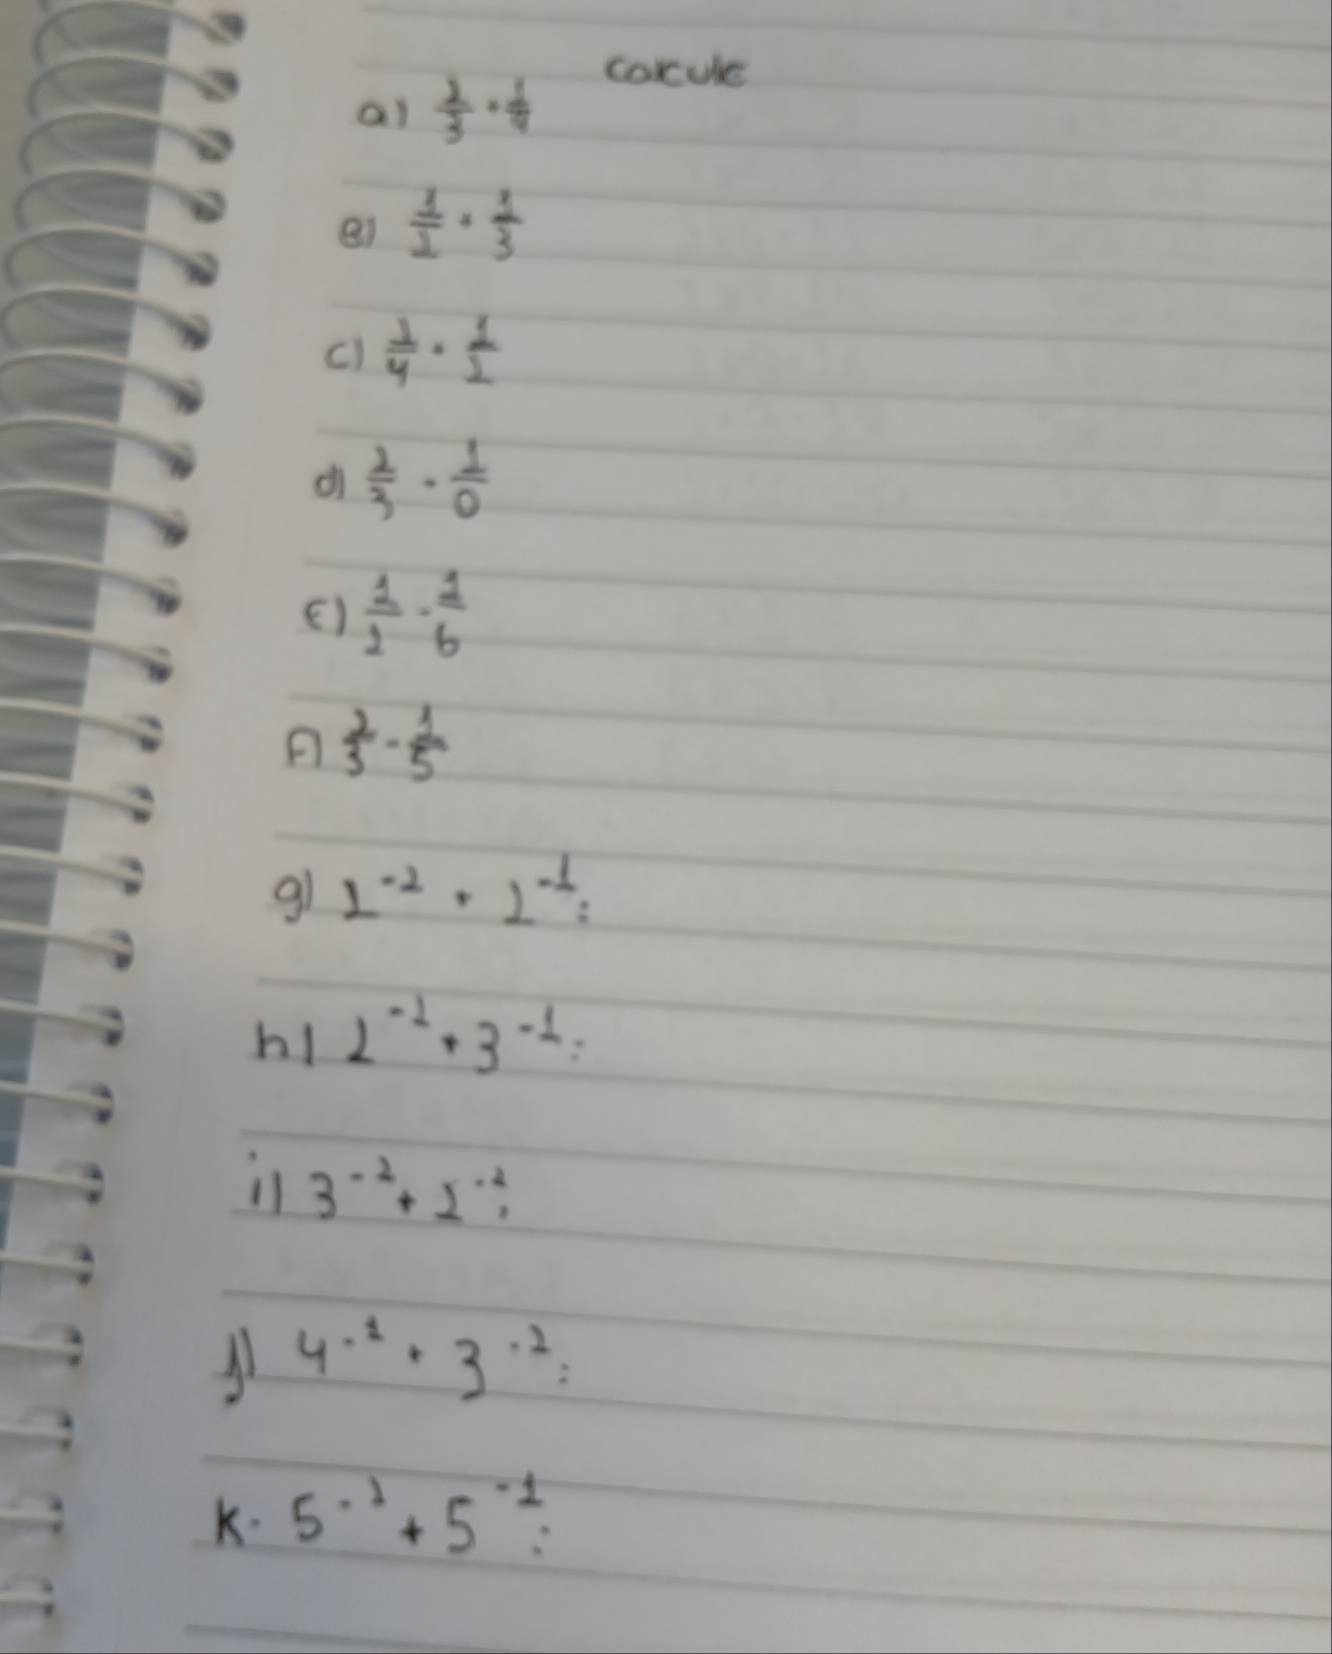 calcule
a) 2/3 + 1/4
B) 1/2 + 1/3
c) 1/4 + 1/2
d) 2/3 - 1/0
E) 1/2 - 1/6
F) 2/3 - 1/5
g) 2⁻² + 2⁻¹ =
h) 2⁻² + 3⁻¹ =
i) 3⁻² + 2⁻² =
j) 4⁻¹ + 3⁻² =
K. 5⁻² + 5⁻¹ =